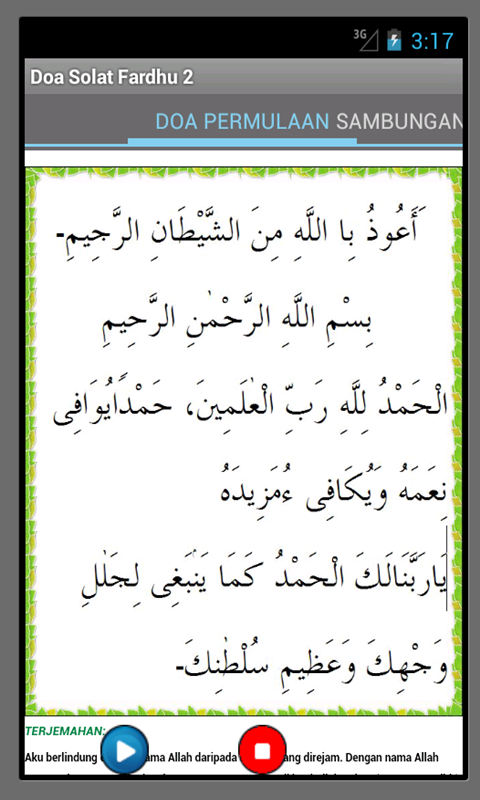 3G 3:17
Doa Solat Fardhu 2
DOA PERMULAAN SAMBUNGAN
أَعُوذُ بِا اللَّهِ مِنَ الشَّيْطَانِ الرَّجِيمِ-
بِسْمِ اللَّهِ الرَّحْمٰنِ الرَّحِيمِ
الْحَمْدُ لِلَّهِ رَبِّ الْعٰلَمِينَ، حَمْدًايُوَافِى
نِعَمَهُ وَيُكَافِى ءُمَزِيدَهُ
يَارَبَّنَالَكَ الْحَمْدُ كَمَا يَنْبَغِى لِجَلٰلِ
وَجْهِكَ وَعَظِيمِ سُلْطٰنِكَ-
TERJEMAHAN:
Aku berlindung nama Allah daripada direjam. Dengan nama Allah